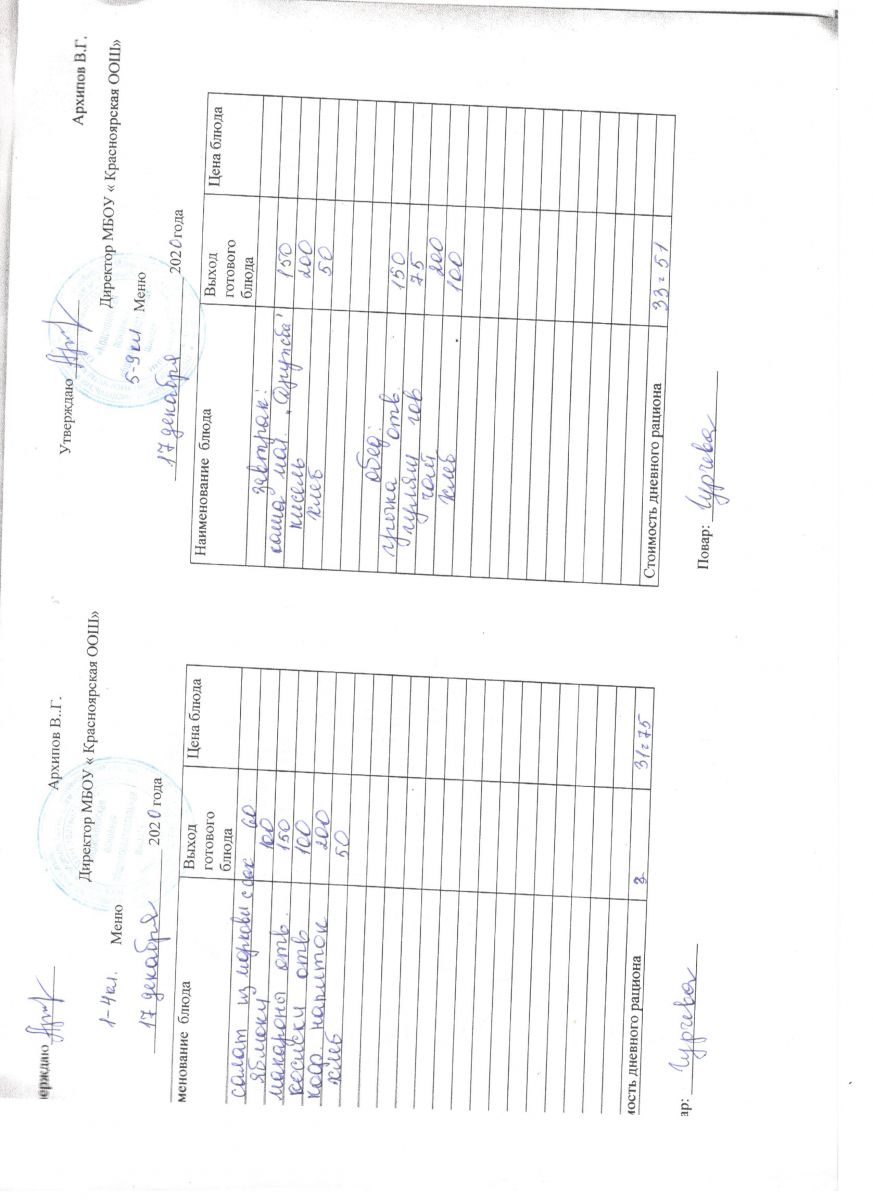 ерждаю
Архипов В..Г.
Директор МБОУ « Красноярская ООШ»
1-4 кл. Меню
17 декабря 2020 года
менование блюда Выход готового блюда Цена блюда
салат из моркови с сах 60
яблоки 100
макароны отв. 150
сосиски отв 100
коф. напиток 200
хлеб 50
мость дневного рациона 31=75
ар: Чургева
Утверждаю
Архипов В.Г.
Директор МБОУ « Красноярская ООШ»
5-9 кл Меню
17 декабря 2020 года
Наименование блюда Выход готового блюда Цена блюда
завтрак:
каша мол. "Дружба" 150
кисель 200
хлеб 50
обед:
гречка отв. 150
гуляш гов 75
чай 200
хлеб 100
Стоимость дневного рациона 33=51
Повар: Чургева